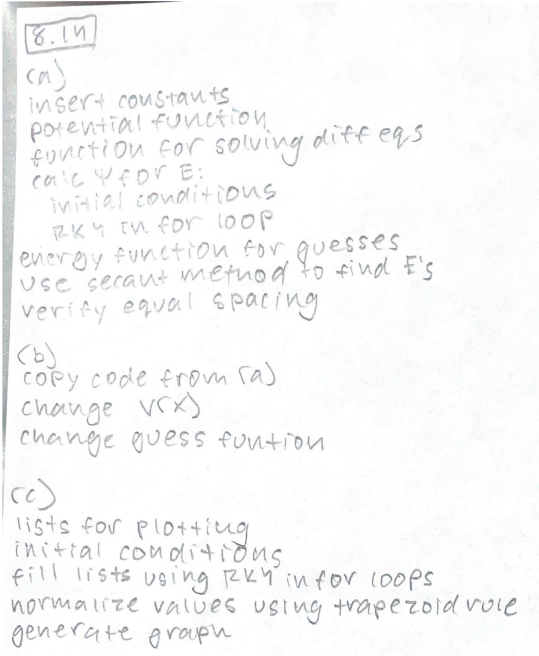 8.14
(a)
insert constants
potential function
function for solving diff eqs
calc ψ for E:
initial conditions
RK4 in for loop
energy function for guesses
use secant method to find E's
verify equal spacing
(b)
copy code from (a)
change V(x)
change guess funtion
(c)
lists for plotting
initial conditions
fill lists using RK4 in for loops
normalize values using trapezoid rule
generate graph